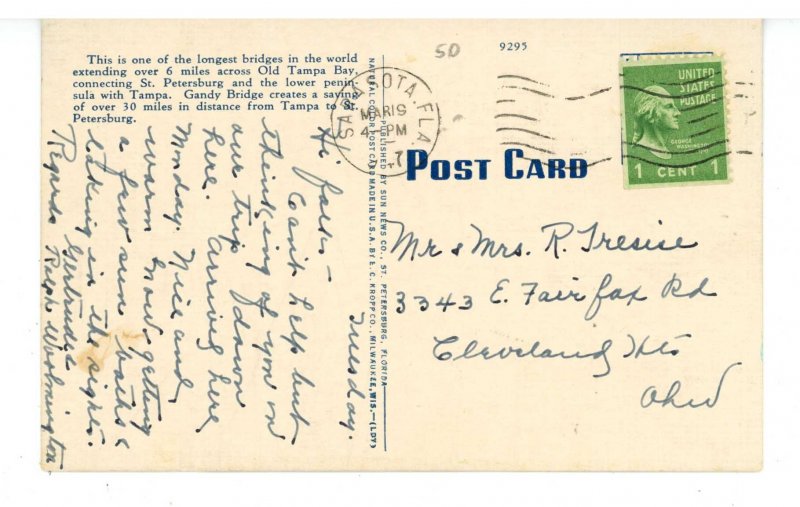 50
9295
This is one of the longest bridges in the world
extending over 6 miles across Old Tampa Bay,
connecting St. Petersburg and the lower penin-
sula with Tampa. Gandy Bridge creates a saving
of over 30 miles in distance from Tampa to St.
Petersburg.
SARASOTA, FLA
MAR 19
4 PM
UNITED
STATES
POSTAGE
GEORGE
WASHINGTON
1 CENT 1
POST CARD
NATURAL COLOR POST CARD MADE IN U.S.A. BY E. C. KROPP CO., MILWAUKEE, WIS.—(LDY)
PUBLISHED BY SUN NEWS CO., ST. PETERSBURG, FLORIDA
Tuesday.
Hi folks—
Can't help but
thinking of you on
our trip down
here. Arriving here
Monday. Nice and
warm. Now getting
a few sun baths &
taking in the sights.
Regards Gertrude &
Ralph
Mr & Mrs. R. Tresise
3343 E. Fairfax Rd
Cleveland Hts
Ohio